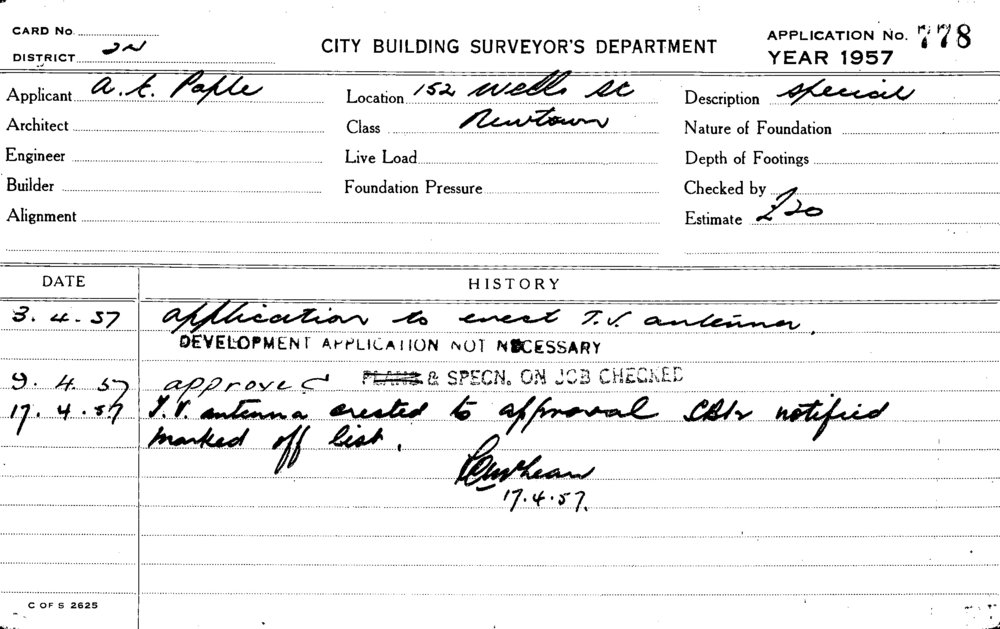 CARD No
DISTRICT 2N
CITY BUILDING SURVEYOR'S DEPARTMENT
APPLICATION No. 778
YEAR 1957
Applicant Location 152 Wells St Description special
Architect Class Newtown Nature of Foundation
Engineer Live Load Depth of Footings
Builder Foundation Pressure Checked by
Alignment Estimate £20
DATE HISTORY
3.4.57 application to erect T.V. antenna.
DEVELOPMENT APPLICATION NOT NECESSARY
9.4.57 approved PLANS & SPECN. ON JOB CHECKED
17.4.57 T.V. antenna erected to approval notified
marked off list.
17.4.57.
C OF S 2625